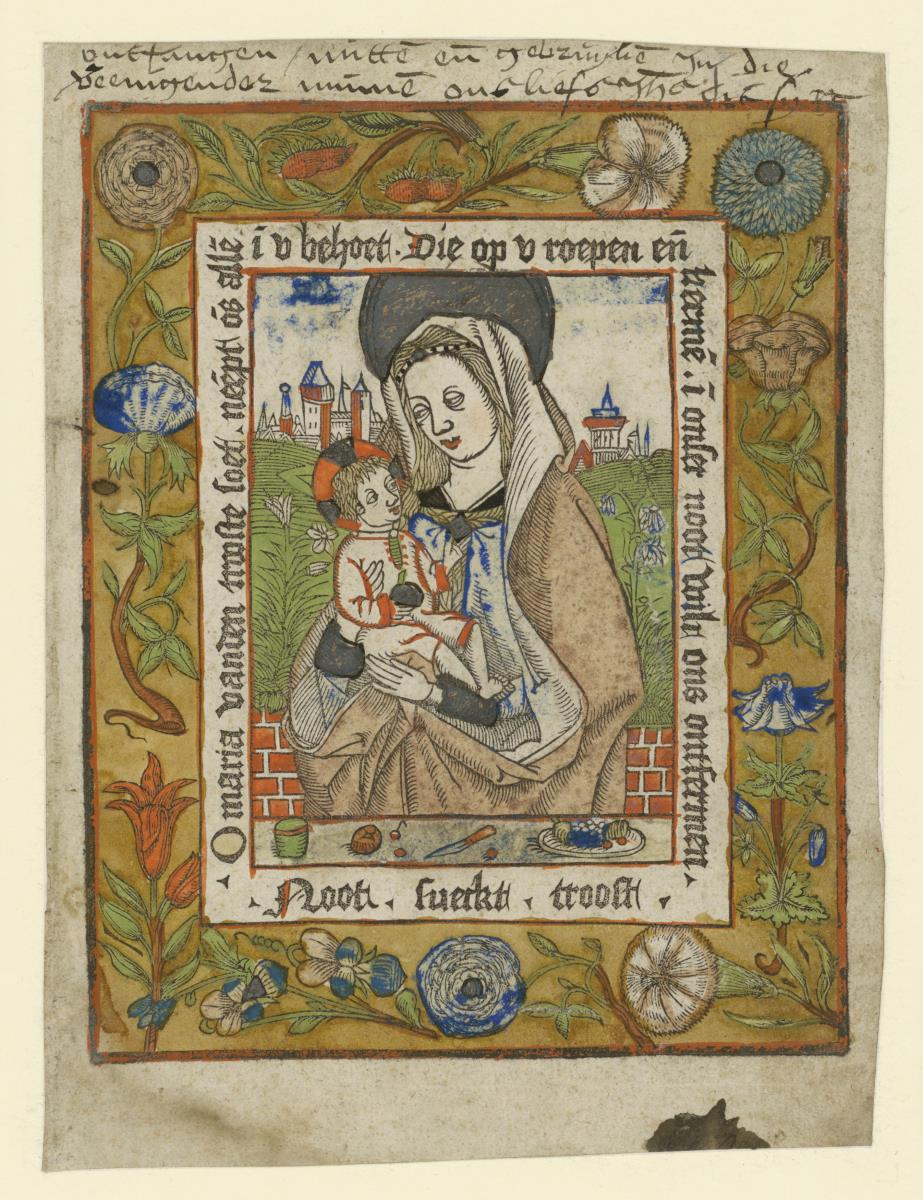 ontfangen / mitte en̄ gebruykē Jn die
veenigender minnē ons liefs Jhs
O maria vanden troste soet . neēpt ōs allē
ī v behoet . Die op v roepen en̄
kermē . ī onser noot wilt ons ontfermen
. Noot . sueckt . troost .